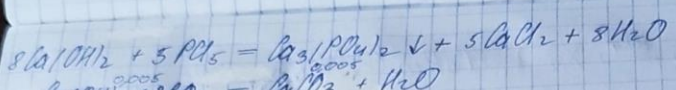 8Ca(OH)2 + 3PCl5 = Ca3(PO4)2 ↓ + 5CaCl2 + 8H2O
0,005 0,005
= CaCO3 + H2O